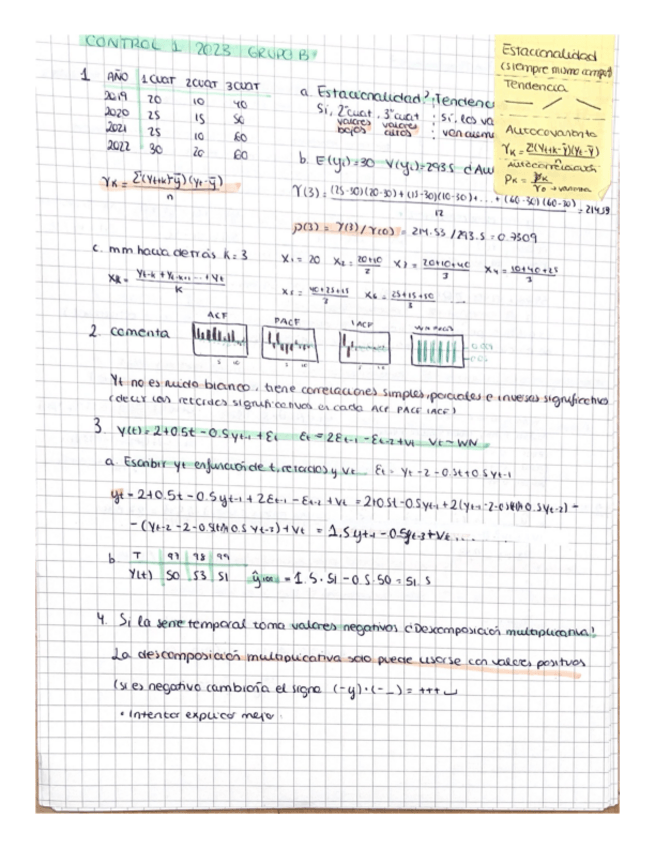 CONTROL 1 2023 GRUPO B
Estacionalidad
(siempre mismo compor
Tendencia
Autocovarianza
γk = Σ(Yt+k-ȳ)(Yt-ȳ)
n
Autocorrelación
ρk = γk
γ0 → varianza
1 AÑO 1CUAT 2CUAT 3CUAT
2019 20 10 40
2020 25 15 50
2021 25 10 60
2022 30 20 60
γk = Σ(Yt+k-ȳ)(Yt-ȳ)
n
a. Estacionalidad? ¿Tendenc
Si, 2ºcuat, 3ºcuat : si, los va
valores valores
bajos altos : van aume
b. E(yt)=30 V(yt)=293.5 ¿Au
γ(3) = (25-30)(20-30)+(15-30)(10-30)+...+(60-30)(60-30) = 214.59
12
ρ(3) = γ(3)/γ(0) = 214.53/293.5 = 0.7309
c. mm hacia detrás k=3 X1 = 20 X2 = 20+10/2 X3 = 20+10+40/3 X4 = 10+40+25/3
Xk = Yt-k + Yt-k+1 ... + Yt
k
X5 = 40+25+15/3 X6 = 25+15+50/3 ....
2. comenta ACF PACF IACF
Yt no es ruido blanco, tiene correlaciones simples, parciales e inversas significativas
(decir los retardos significativos en cada ACF PACF IACF)
3. y(t) = 2+0.5t-0.5yt-1+εt εt = 2εt-1-εt-2+vt vt~WN
a. Escribir yt en función de t, retardos y vt. εt = yt-2-0.5t+0.5yt-1
yt = 2+0.5t-0.5yt-1+2εt-1-εt-2+vt = 2+0.5t-0.5yt-1+2(yt-1-2-0.5(t-1)+0.5yt-2)-
-(yt-2-2-0.5(t-2)+0.5yt-3)+vt = 1.5yt-1-0.5yt-3+vt...
b T 97 98 99
Y(t) 50 53 51 ŷ100 = 1.5·51-0.5·50 = 51.5
4. Si la serie temporal toma valores negativos ¿Descomposición multiplicativa?
La descomposición multiplicativa solo puede usarse con valores positivos
(si es negativo cambiaría el signo (-y)·(-_) = +++
• Intentar explicar mejor.